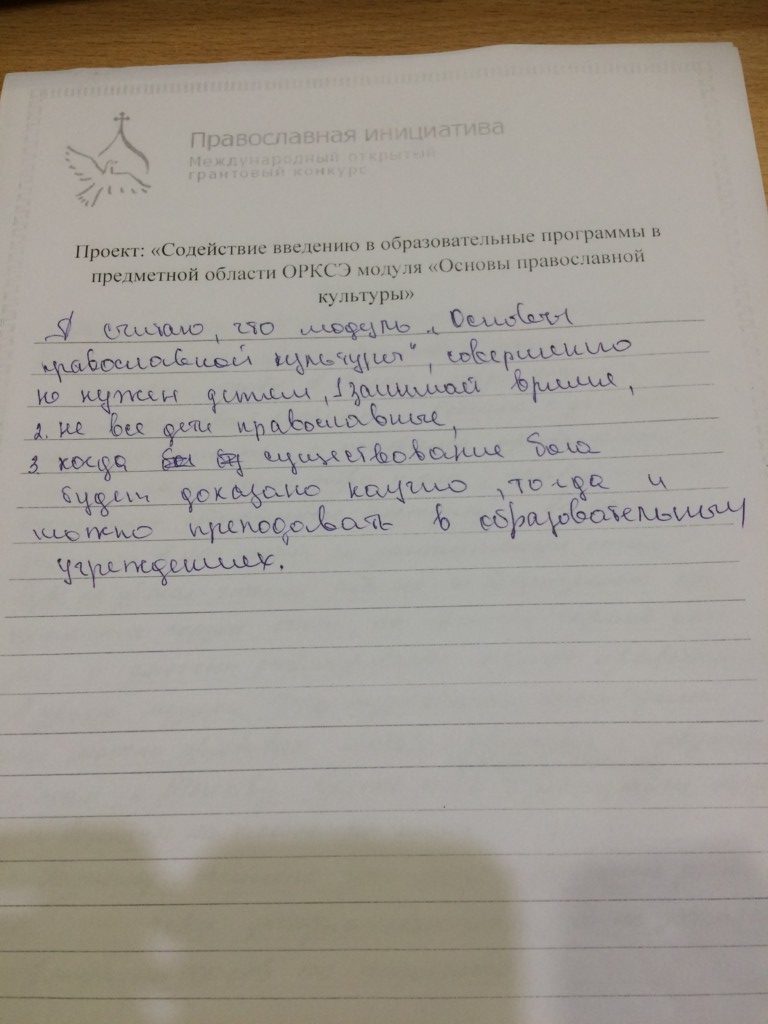 Православная инициатива
Международный открытый
грантовый конкурс
Проект: «Содействие введению в образовательные программы в
предметной области ОРКСЭ модуля «Основы православной
культуры»
Я считаю, что модуль „Основы
православной культуры", совершенно
не нужен детям, 1 занимай время,
2. не все дети православные,
3 когда существование бога
будет доказано научно, тогда и
можно преподавать в образовательных
учреждениях.